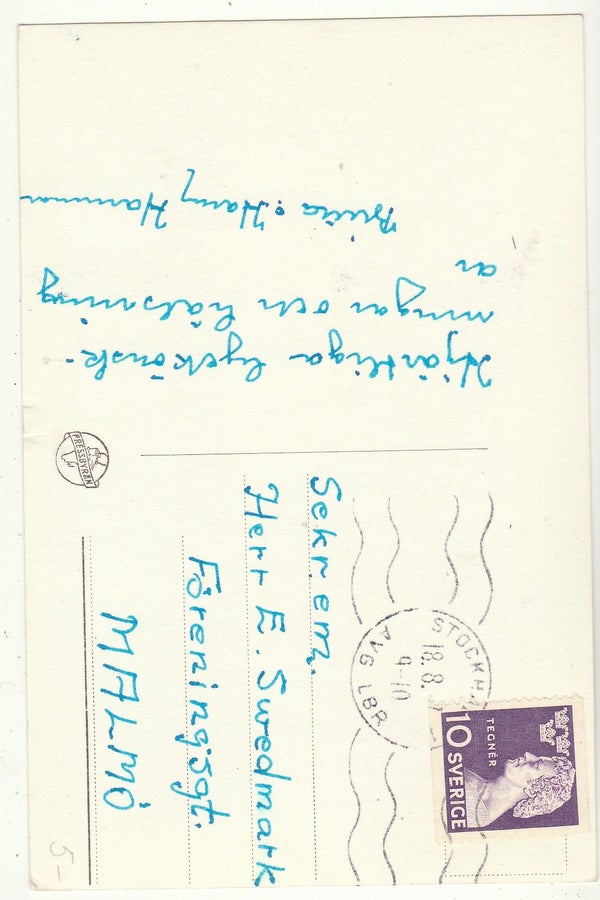 Hjärtliga lyckönsk-
ningar och hälsning
ar
Harry
PRESSBYRÅN
Sekr. em.
Herr E. Swedmark
Föreningsgt.
MALMÖ
STOCKH
18.8.
9-10
AVG LBR
TEGNÉR
10 SVERIGE
5-